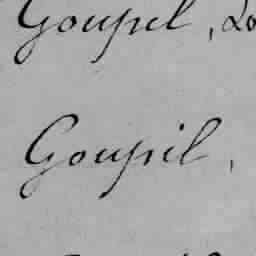 Goupil, Lo
Goupil,